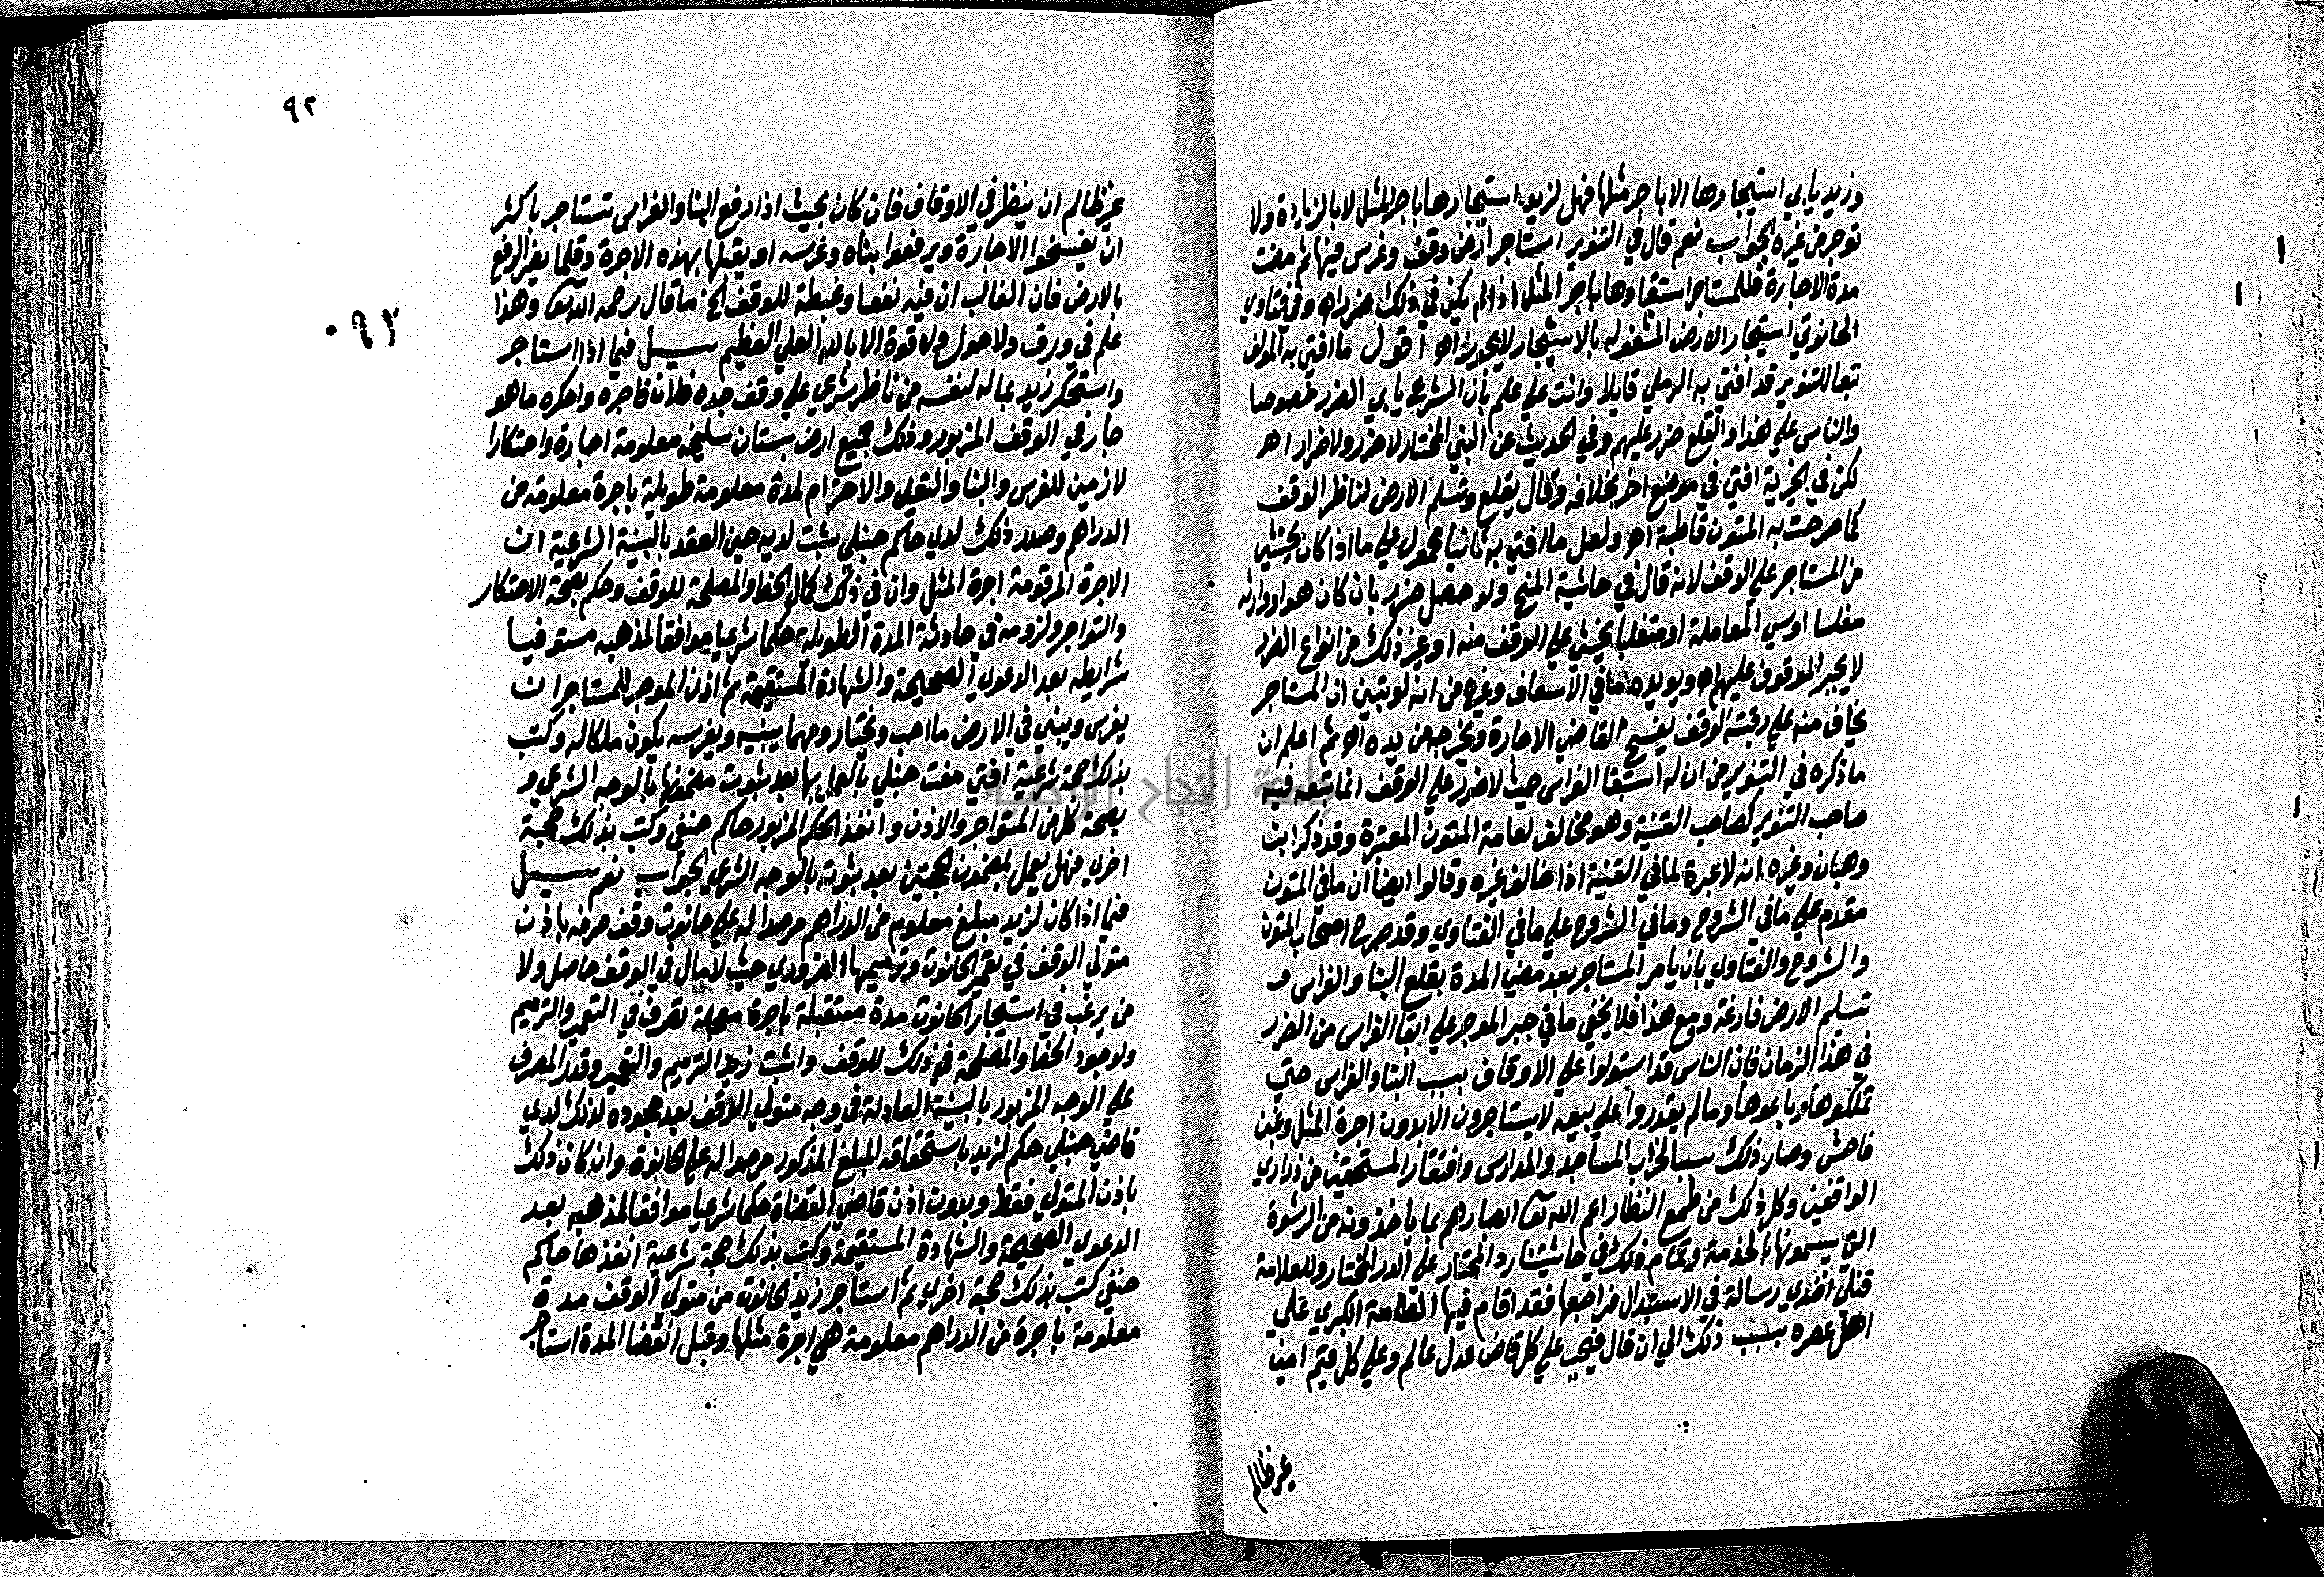 وزيد يابي استيجارها الا باجر مثلها فهل لزيد استيجارها باجر المثل لا بالزيادة ولا
توجر من غيره الجواب نعم قال في التنوير استاجر ارض وقف وغرس فيها ثم مضت
مدة الاجارة فللمستاجر استبقاوها باجر المثل اذا لم يكن في ذلك ضرر اه وفي فتاوي
الحانوتي استيجار الارض المشغوله بالاستيجار لا يجوز اه اقول ما افتي به المولف
تبعا للتنوير قد افتي به الرملي قايلا وانت علي علم بان الشرع يابي الضرر خصوصا
والناس علي هذا والقلع ضرر عليهم وفي الحديث عن النبي المختار لا ضرر ولا ضرار اه
لكن في الخيرية افتي في موضع اخر بخلافه وقال يقلع وتسلم الارض لناظر الوقف
كما صرحت به المتون قاطبة اه ولعل ما افتي به ثانيا محمول علي ما اذا كان يخشي
من المستاجر علي الوقف لانه قال في حاشية المنح ولو حصل ضرر بان كان هو او وارثه
مفلسا او سي المعاملة او متغلبا يخشي علي الوقف منه او غير ذلك من انواع الضرر
لا يجبر الموقوف عليهم اه ويويده ما في الاسعاف وغيره من انه لو تبين ان المستاجر
يخاف منه علي رقبة الوقف يفسخ القاضي الاجارة ويخرجه من يده اه ثم اعلم ان
ما ذكره في التنوير من ان له استبقا الغراس حيث لا ضرر علي الوقف انما تبع فيه
صاحب التنوير لصاحب القنية وهو مخالف لعامة المتون المعتبرة وقد ذكر ابن
وهبان وغيره انه لا عبرة لما في القنية اذا خالف غيره وقالوا ايضا ان ما في المتون
مقدم علي ما في الشروح وما في الشروح علي ما في الفتاوي وقد صرح اصحاب المتون
والشروح والفتاوي بان يامر المستاجر بعد مضي المدة بقلع البنا والغراس و
تسليم الارض فارغة ومع هذا فلا يخفي ما في جبر الموجر علي ابقا الغراس من الضرر
في هذا الزمان فان الناس قد استولوا علي الاوقاف بسبب البنا والغراس حتي
تملكوها وباعوها وما لم يقدروا علي بيعه لا يستاجرون الا بدون اجرة المثل وغبن
فاحش وصار ذلك سببا لخراب المساجد والمدارس وافتقار المستحقين من ذراري
الواقفين وكل ذلك من طمع النظار اعم الله تعا ابصارهم بما ياخذونه من الرشوة
التي يسمونها بالخدمة وتمام ذلك في حاشيتنا رد المحتار علي الدر المختار وللعلامة
قنلي افندي رسالة في الاستبدال فراجعها فقد اقام فيها الطامة الكبري علي
اهل عصره بسبب ذلك الي ان قال فيجب علي كل قاض عدل عالم وعلي كل قيم امين
غير ظالم
٩٢
٠٩٢
غير ظالم ان ينظر في الاوقاف فان كان بحيث اذا رفع البنا والغراس تستاجر باكثر
ان يفسخوا الاجارة ويرفعوا بناه وغرسه او يقبلها بهذه الاجرة وقلما يضر الرفع
بالارض فان الغالب ان فيه نفعا وغبطة للوقف الخ ما قال رحمه الله تعا وهذا
علم في ورق ولا حول ولا قوة الا بالله العلي العظيم سيل فيما اذا استاجر
واستحكر زيد بماله لنفسه من ناظر شرعي علي وقف جده فلان فاجره واحكره ما هو
جار في الوقف المزبور وذلك جميع ارض بستان سليخ معلومة اجارة واحتكارا
لازمين للغرس والبنا والتعلي والاحترام لمدة معلومة طويلة باجرة معلومة من
الدراهم وصدر ذلك لدي حاكم حنبلي ثبت لديه حين العقد بالبينة الشرعية ان
الاجرة المرقومة اجرة المثل وان في ذلك كمال الحظ والمصلحة للوقف وحكم بصحة الاحتكار
والتواجر ولزومه في حادثة المدة الطويلة حكما شرعيا موافقا لمذهبه مستوفيا
شرايطه بعد الدعوي الصحيحة والشهادة المستقيمة ثم اذن الموجر للمستاجر ان
يغرس ويبني في الارض ما احب ويختار ومهما يبنيه ويغرسه يكون ملكا له وكتب
بذلك حجة شرعية افتي مفت حنبلي بالعمل بها بعد ثبوت مضمونها بالوجه الشرعي و
بصحة كل من المتواجر والاذن وانفذ الحكم المزبور حاكم حنفي وكتب بذلك حجة
اخري فهل يعمل بمضمون الحجتين بعد ثبوته بالوجه الشرعي الجواب نعم سيل
فيما اذا كان لزيد مبلغ معلوم من الدراهم مرصدا له علي حانوت وقف صرفه باذن
متولي الوقف في تعمير الحانوت وترميمها الضروري حيث لا مال في الوقف حاصل ولا
من يرغب في استيجار الحانوت مدة مستقبلة باجرة معجلة تصرف في التعمير والترميم
ولوجود الحظ والمصلحة في ذلك للوقف واثبت زيد الترميم والتعمير وقدر المصرف
علي الوجه المزبور بالبينة العادلة في وجه متولي الوقف بعد جحوده لذلك لدي
قاضي حنبلي حكم لزيد باستحقاقه المبلغ المذكور مرصدا له علي الحانوت وان كان ذلك
باذن المتولي فقط وبدون اذن قاضي القضاة حكما شرعيا موافقا لمذهبه بعد
الدعوي الصحيحة والشهادة المستقيمة وكتب بذلك حجة شرعية انفذها حاكم
حنفي كتب بذلك حجة اخري ثم استاجر زيد الحانوت من متولي الوقف مدة
معلومة باجرة من الدراهم معلومة هي اجرة مثلها وقبل انقضا المدة استاجر